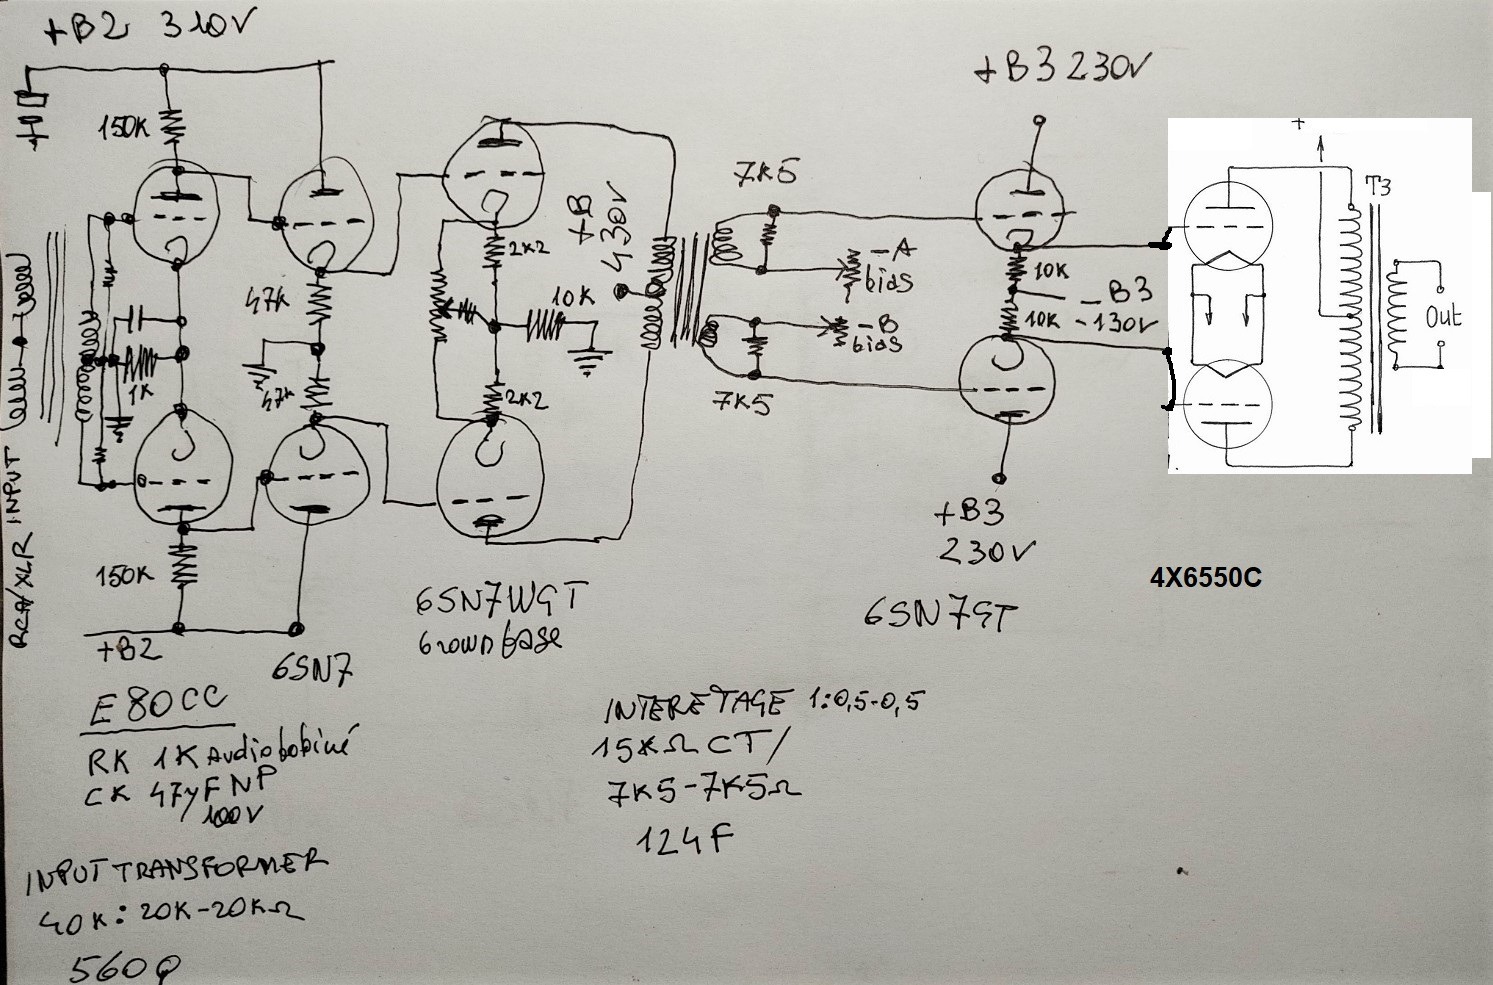 +B2 310V
150K
47K
47K
1K
150K
+B2
RCA/XLR INPUT
2K2
10K
2K2
+B
430V
7K5
-A
bias
-B
bias
7K5
+B3 230V
10K
10K
-B3
-130V
+B3
230V
+
T3
Out
4X6550C
6SN7
6SN7WGT
brown base
6SN7GT
E80CC
RK 1K Audiobobiné
CK 47µF NP
100V
INTERETAGE 1:0,5-0,5
15KΩ CT/
7K5-7K5Ω
124F
INPUT TRANSFORMER
40K: 20K-20KΩ
560Q